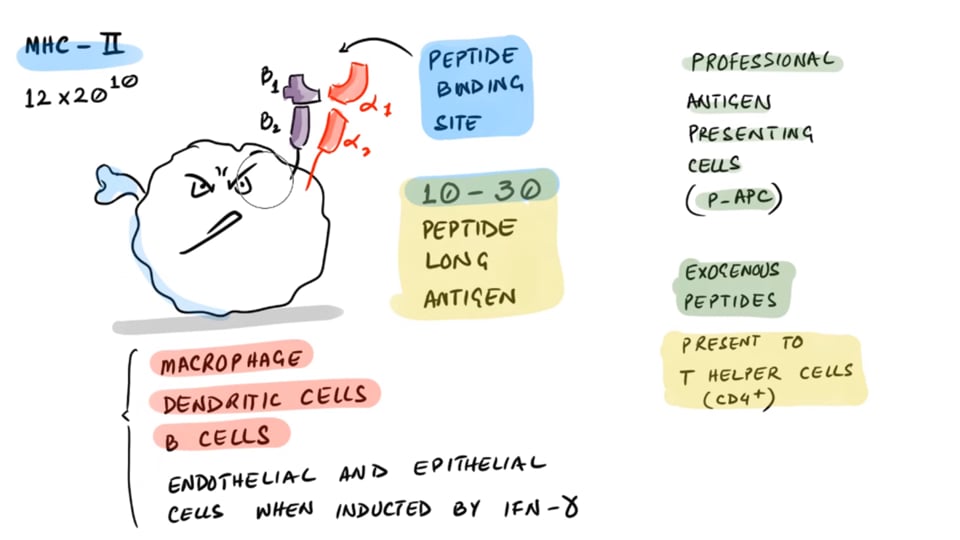 MHC - II
12 x 20^10
B1
B2
α1
α2
PEPTIDE
BINDING
SITE
10 - 30
PEPTIDE
LONG
ANTIGEN
MACROPHAGE
DENDRITIC CELLS
B CELLS
ENDOTHELIAL AND EPITHELIAL
CELLS WHEN INDUCTED BY IFN-γ
PROFESSIONAL
ANTIGEN
PRESENTING
CELLS
(P-APC)
EXOGENOUS
PEPTIDES
PRESENT TO
T HELPER CELLS
(CD4+)